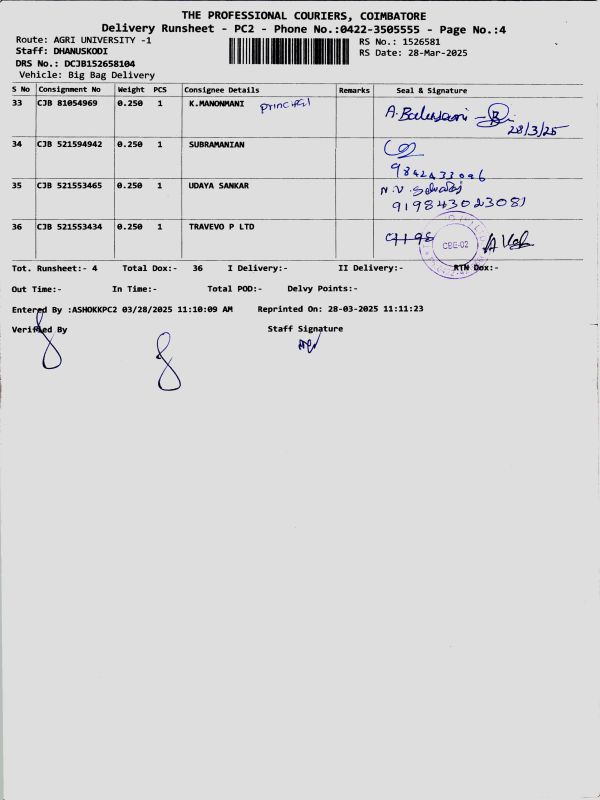 THE PROFESSIONAL COURIERS, COIMBATORE
Delivery Runsheet - PC2 - Phone No.:0422-3505555 - Page No.:4
Route: AGRI UNIVERSITY -1 RS No.: 1526581
Staff: DHANUSKODI RS Date: 28-Mar-2025
DRS No.: DCJB152658104
Vehicle: Big Bag Delivery
S No Consignment No Weight PCS Consignee Details Remarks Seal & Signature
33 CJB 81054969 0.250 1 K.MANONMANI Principal A. 28/3/25
34 CJB 521594942 0.250 1 SUBRAMANIAN
9842433096
35 CJB 521553465 0.250 1 UDAYA SANKAR N.V.
919843023081
36 CJB 521553434 0.250 1 TRAVEVO P LTD 9198 CBE-02
Tot. Runsheet:- 4 Total Dox:- 36 I Delivery:- II Delivery:- RTN Dox:-
Out Time:- In Time:- Total POD:- Delvy Points:-
Entered By :ASHOKKPC2 03/28/2025 11:10:09 AM Reprinted On: 28-03-2025 11:11:23
Verified By Staff Signature